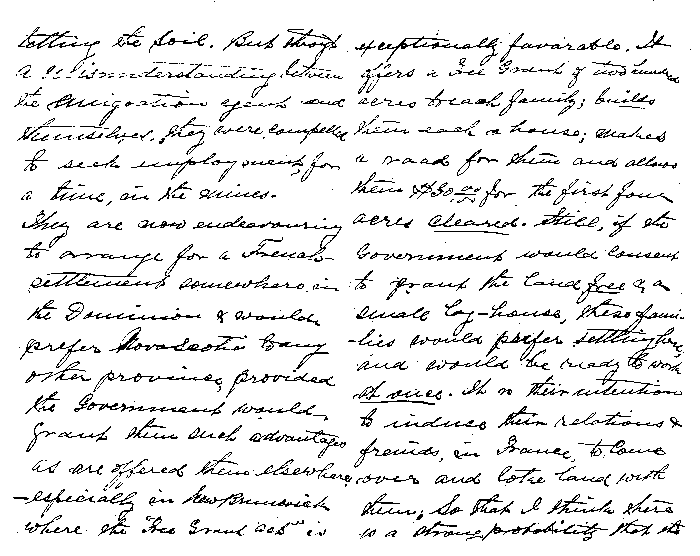 tilling the Soil. But through
a misunderstanding between
the Emigration agent and
themselves, they were compelled
to seek employment, for
a time, in the mines.
They are now endeavouring
to arrange for a French
settlement somewhere in
the Dominion & would
prefer Nova Scotia to any
other province, provided
the Government would
grant them such advantages
as are offered them elsewhere,
-especially in New Brunswick
where the "Free Grant act" is
exceptionally favorable. It
offers a Free Grant of two hundred
acres to each family; builds
them each a house; makes
a road for them and allows
them $30 00/00 for the first four
acres cleared. Still, if the
Government would consent
to grant the land free & a
small Log-house, these fami-
-lies would prefer settling here,
and would be ready to work
at once. It is their intention
to induce their relations &
freinds, in France, to come
over and the land with
them; So that I think there
is a strong probability that the